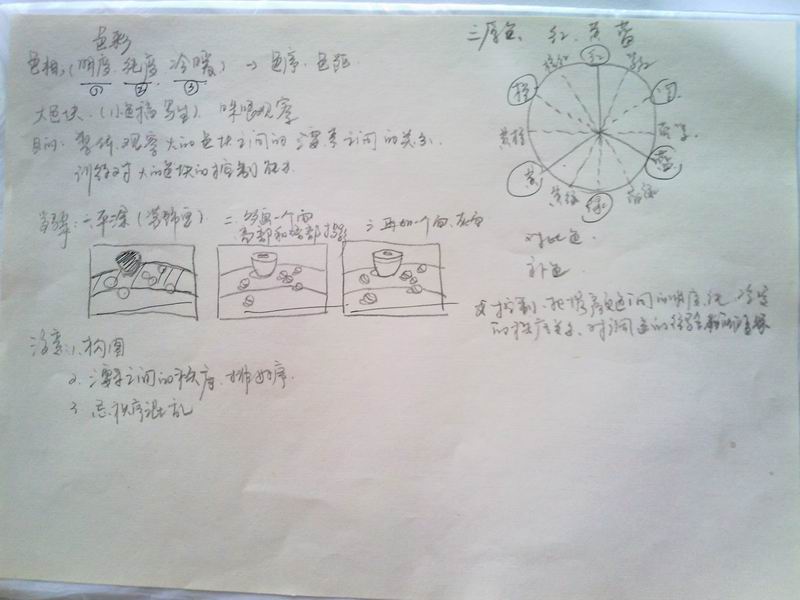 色彩
色相,(明度.纯度.冷暖) → 色序.色距
① ② ③
大色块.(小色稿写生).眯眼观察
目的:整体观察大的色块之间的.要素之间的关系.
训练对大的色块的控制能力.
步骤:一.平涂(装饰画).
二.多画一个面
亮部和暗部投影
三.再加一个面.灰面
注意:1.构图
2.要素之间的秩序.排好序.
3.忌秩序混乱
三原色. 红.黄.蓝
红
紫红
紫
蓝紫
蓝
蓝绿
绿
黄绿
黄
黄橙
橙
对比色.
补色.
控制.把握颜色之间的明度.纯.冷暖
的秩序关系.对调色的经验